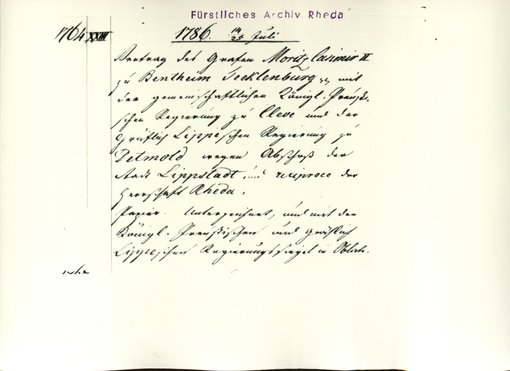 Fürstliches Archiv Rheda
1764 XXIII 1786. 14/25 Juli
Vertrag des Grafen Moritz Casimir II
zu Bentheim Tecklenburg mit
der gemeinschaftlichen Königl. Preußi-
schen Regierung zu Cleve und der
Gräflich Lippeschen Regierung zu
Detmold wegen Abschoß der
Stadt Lippstadt, und reciproce der
Herrschaft Rheda.
Papier. Unterzeichnet, und mit den
Königl. Preußischen und Gräflich
Lippeschen Regierungssiegel in Oblate.